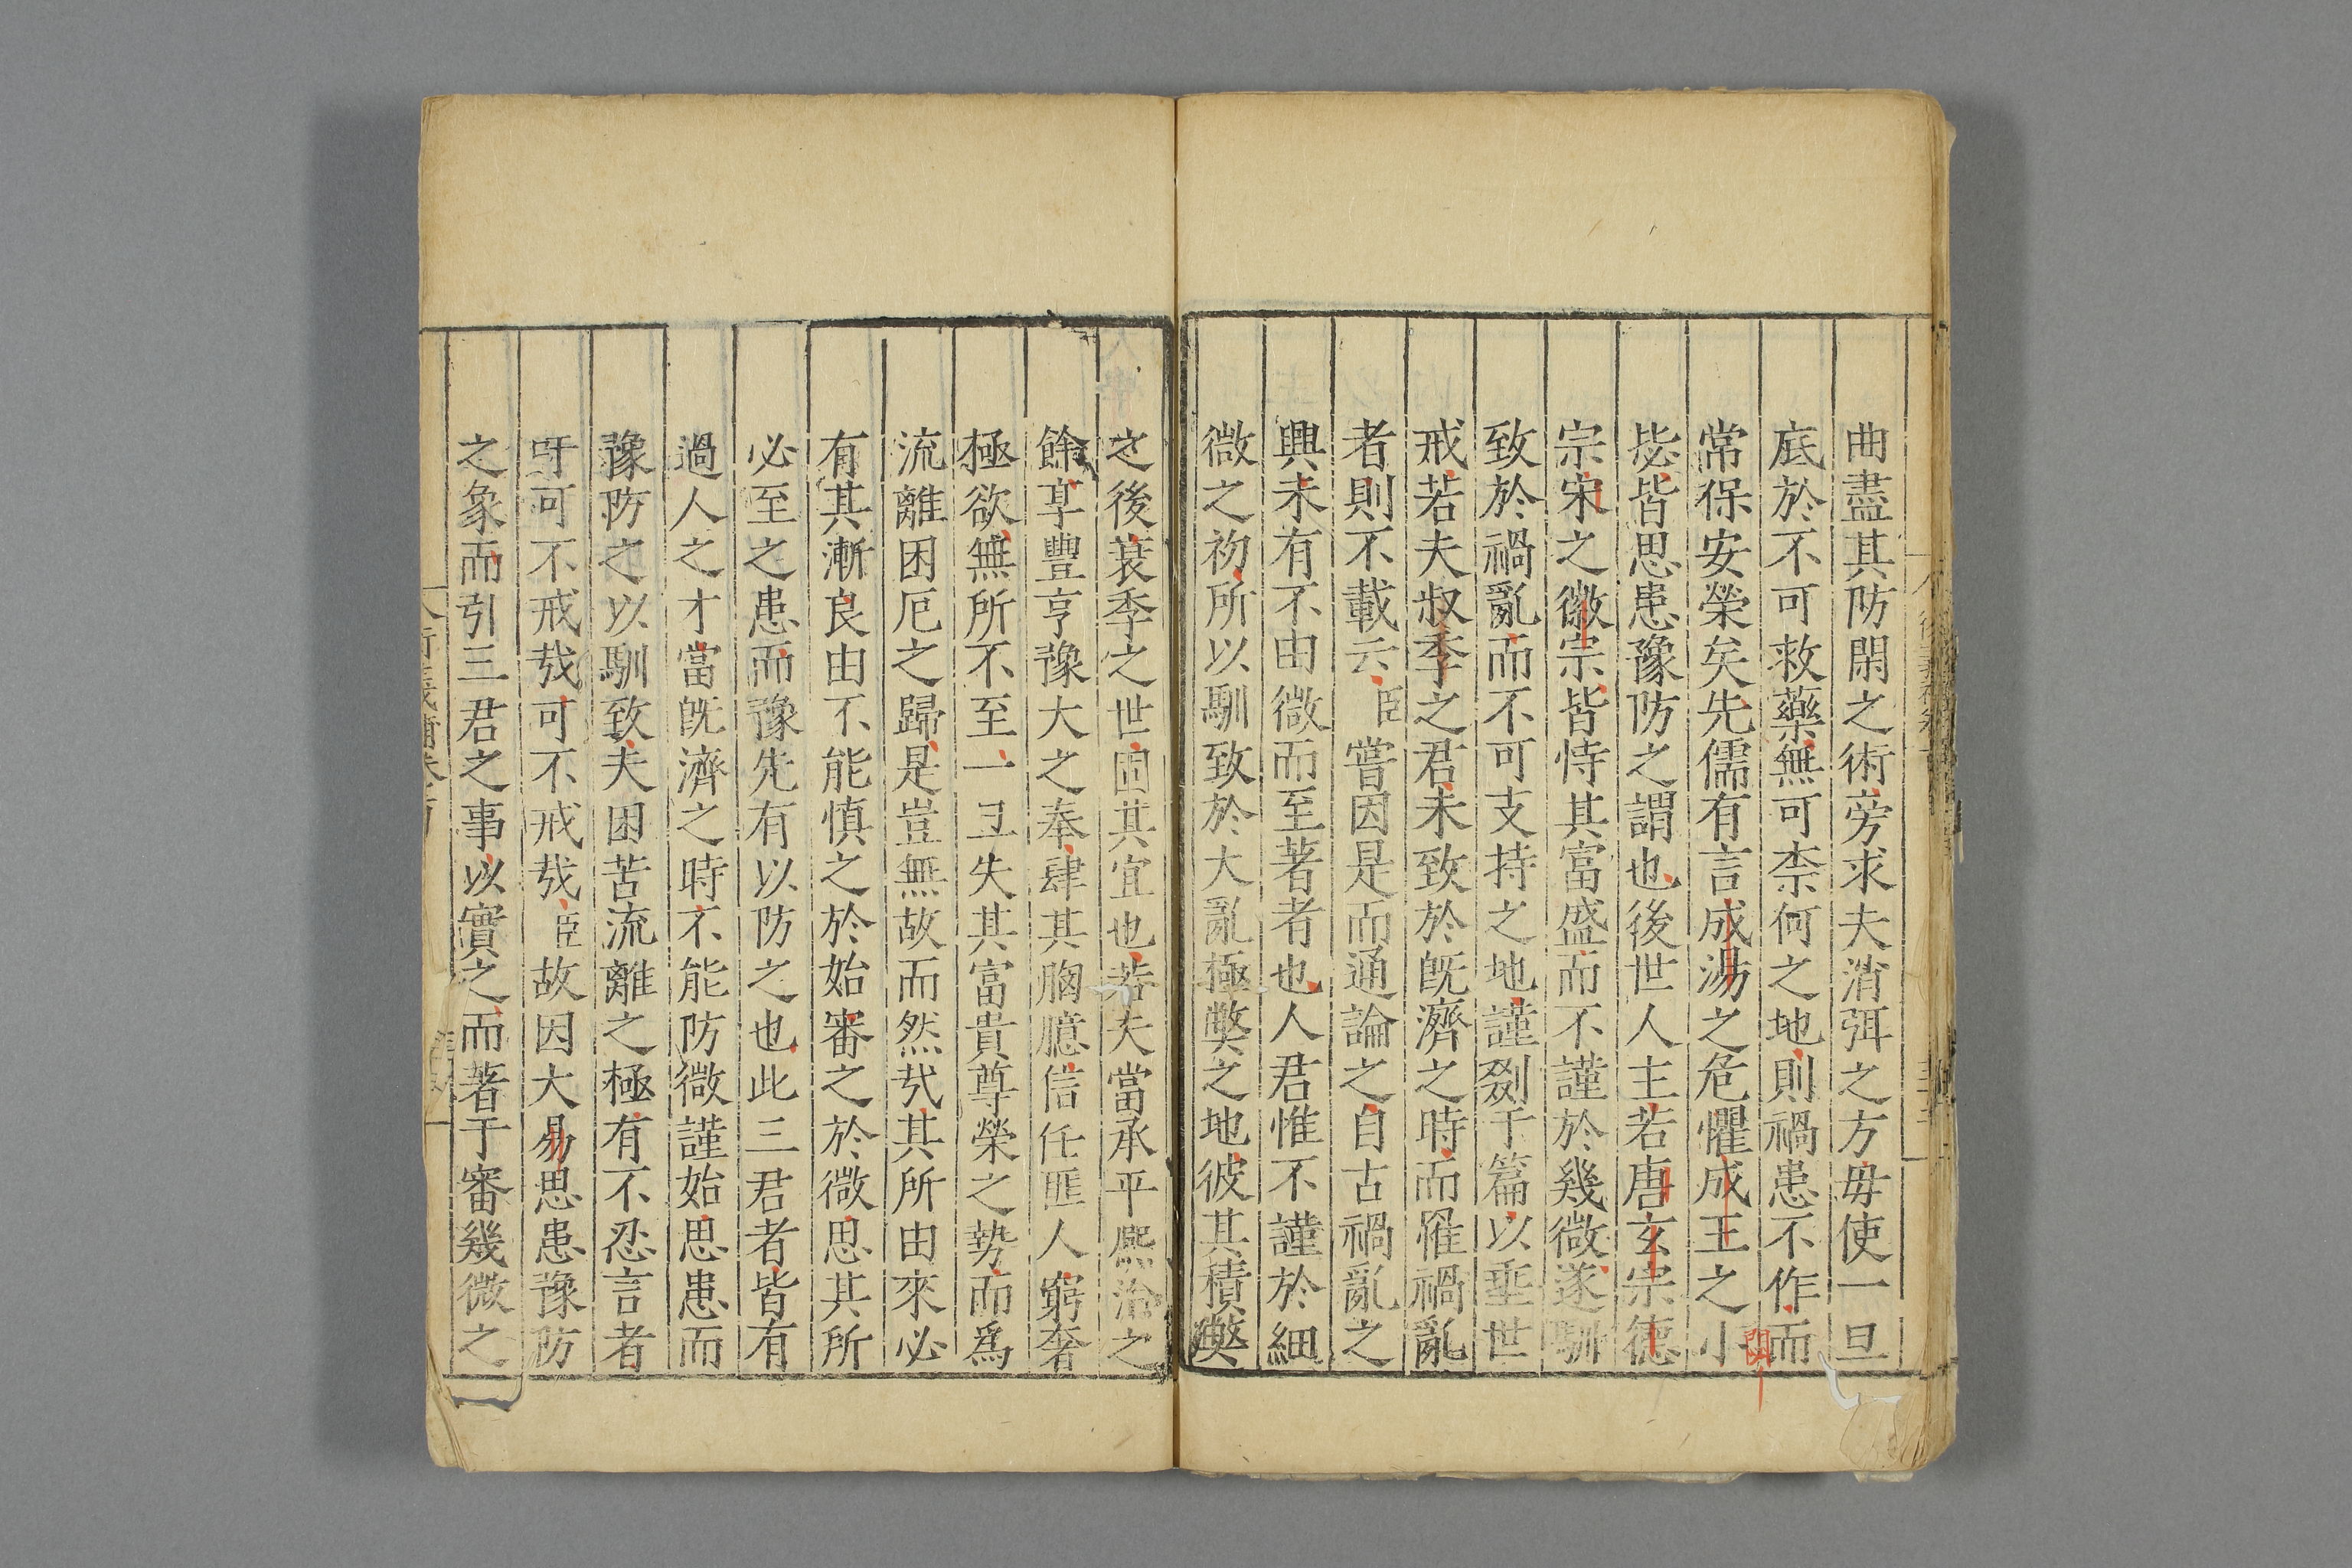 曲盡其防閑之術旁求夫消弭之方毋使一旦
底於不可救藥無可柰何之地則禍患不作而
常保安榮矣先儒有言成湯之危懼成王之小
毖皆思患豫防之謂也後世人主若唐玄宗德
宗宋之徽宗皆恃其富盛而不謹於幾微遂馴
致於禍亂而不可支持之地謹剟于篇以垂世
戒若夫叔季之君未致於旣濟之時而罹禍亂
者則不載云臣嘗因是而通論之自古禍亂之
興未有不由微而至著者也人君惟不謹於細
微之初所以馴致於大亂極弊之地彼其積弊
之後衰季之世固其宜也若夫當承平熈洽之
餘享豐亨豫大之奉肆其胸臆信任匪人窮奢
極欲無所不至一旦失其富貴尊榮之勢而爲
流離困厄之歸是豈無故而然哉其所由來必
有其漸良由不能慎之於始審之於微思其所
必至之患而豫先有以防之也此三君者皆有
過人之才當旣濟之時不能防微謹始思患而
豫防之以馴致夫困苦流離之極有不忍言者
吁可不戒哉可不戒哉臣故因大易思患豫防
之象而引三君之事以實之而著于審幾微之